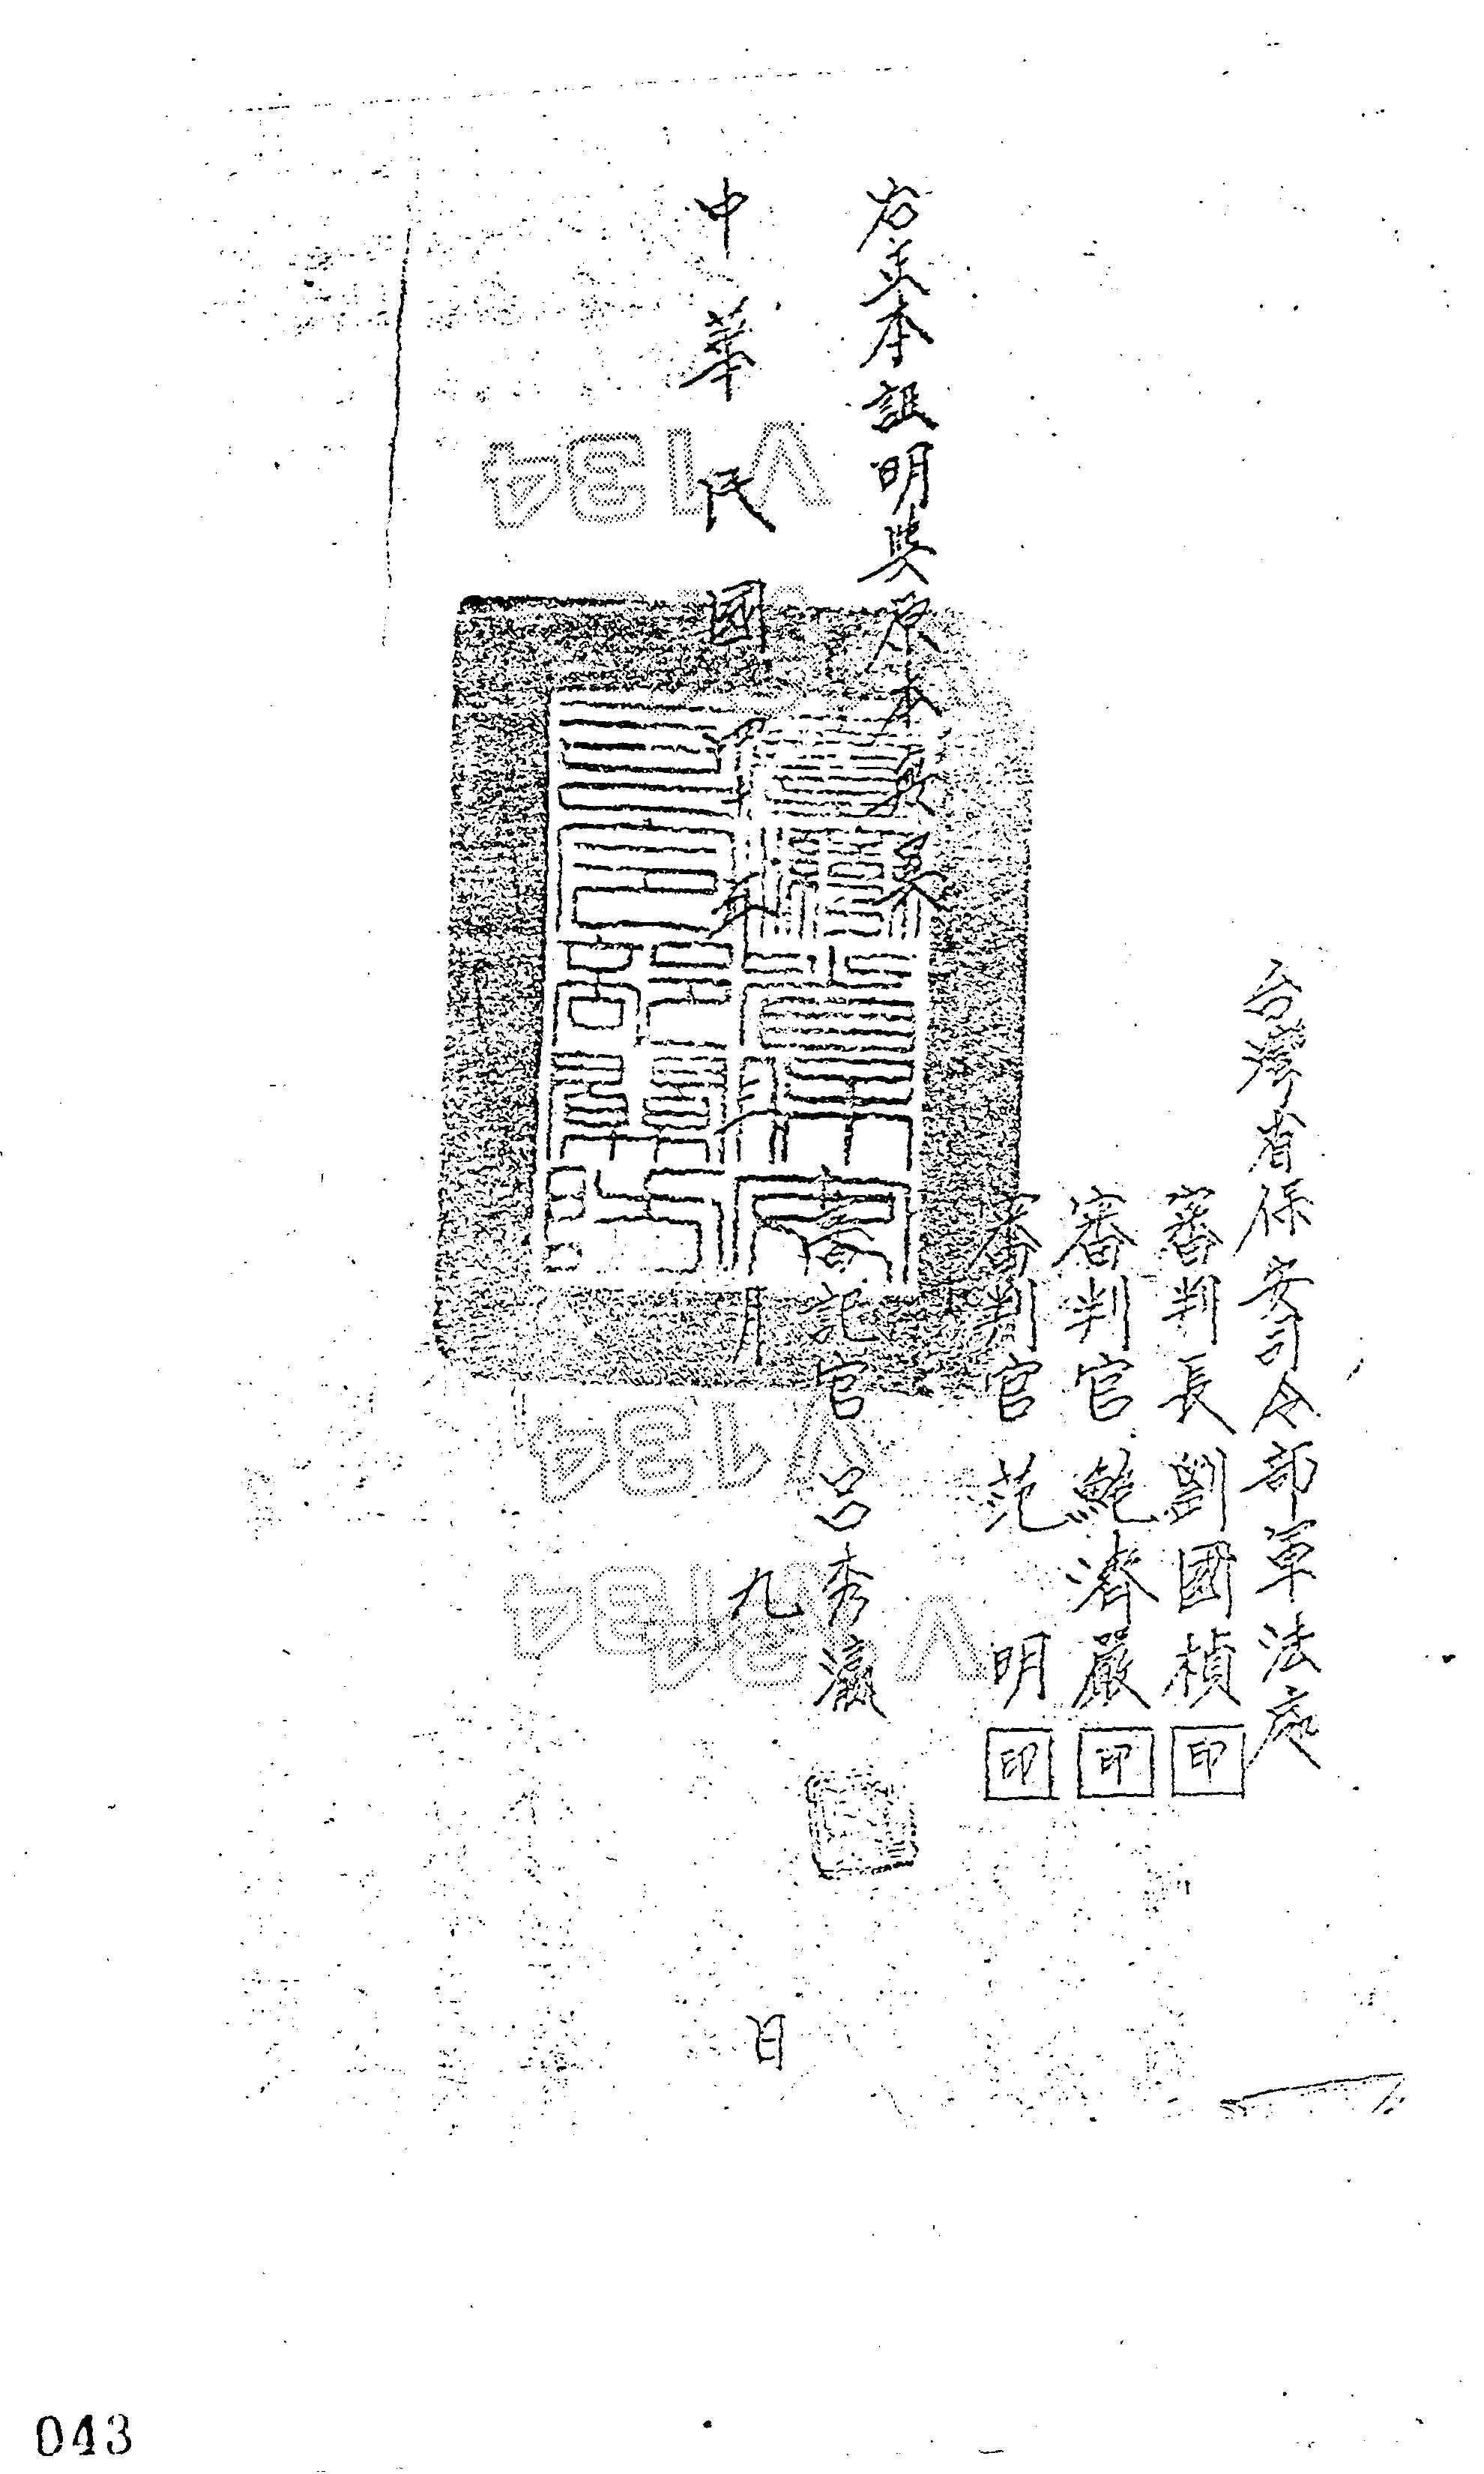 台灣省保安司令部軍法處
審判長劉國楨印
審判官鮑濟嚴印
審判官范明印
右正本證明與原本無異
書記官呂秀瀛
中華民國四十年月九日
V134
V134
V134
V134
043